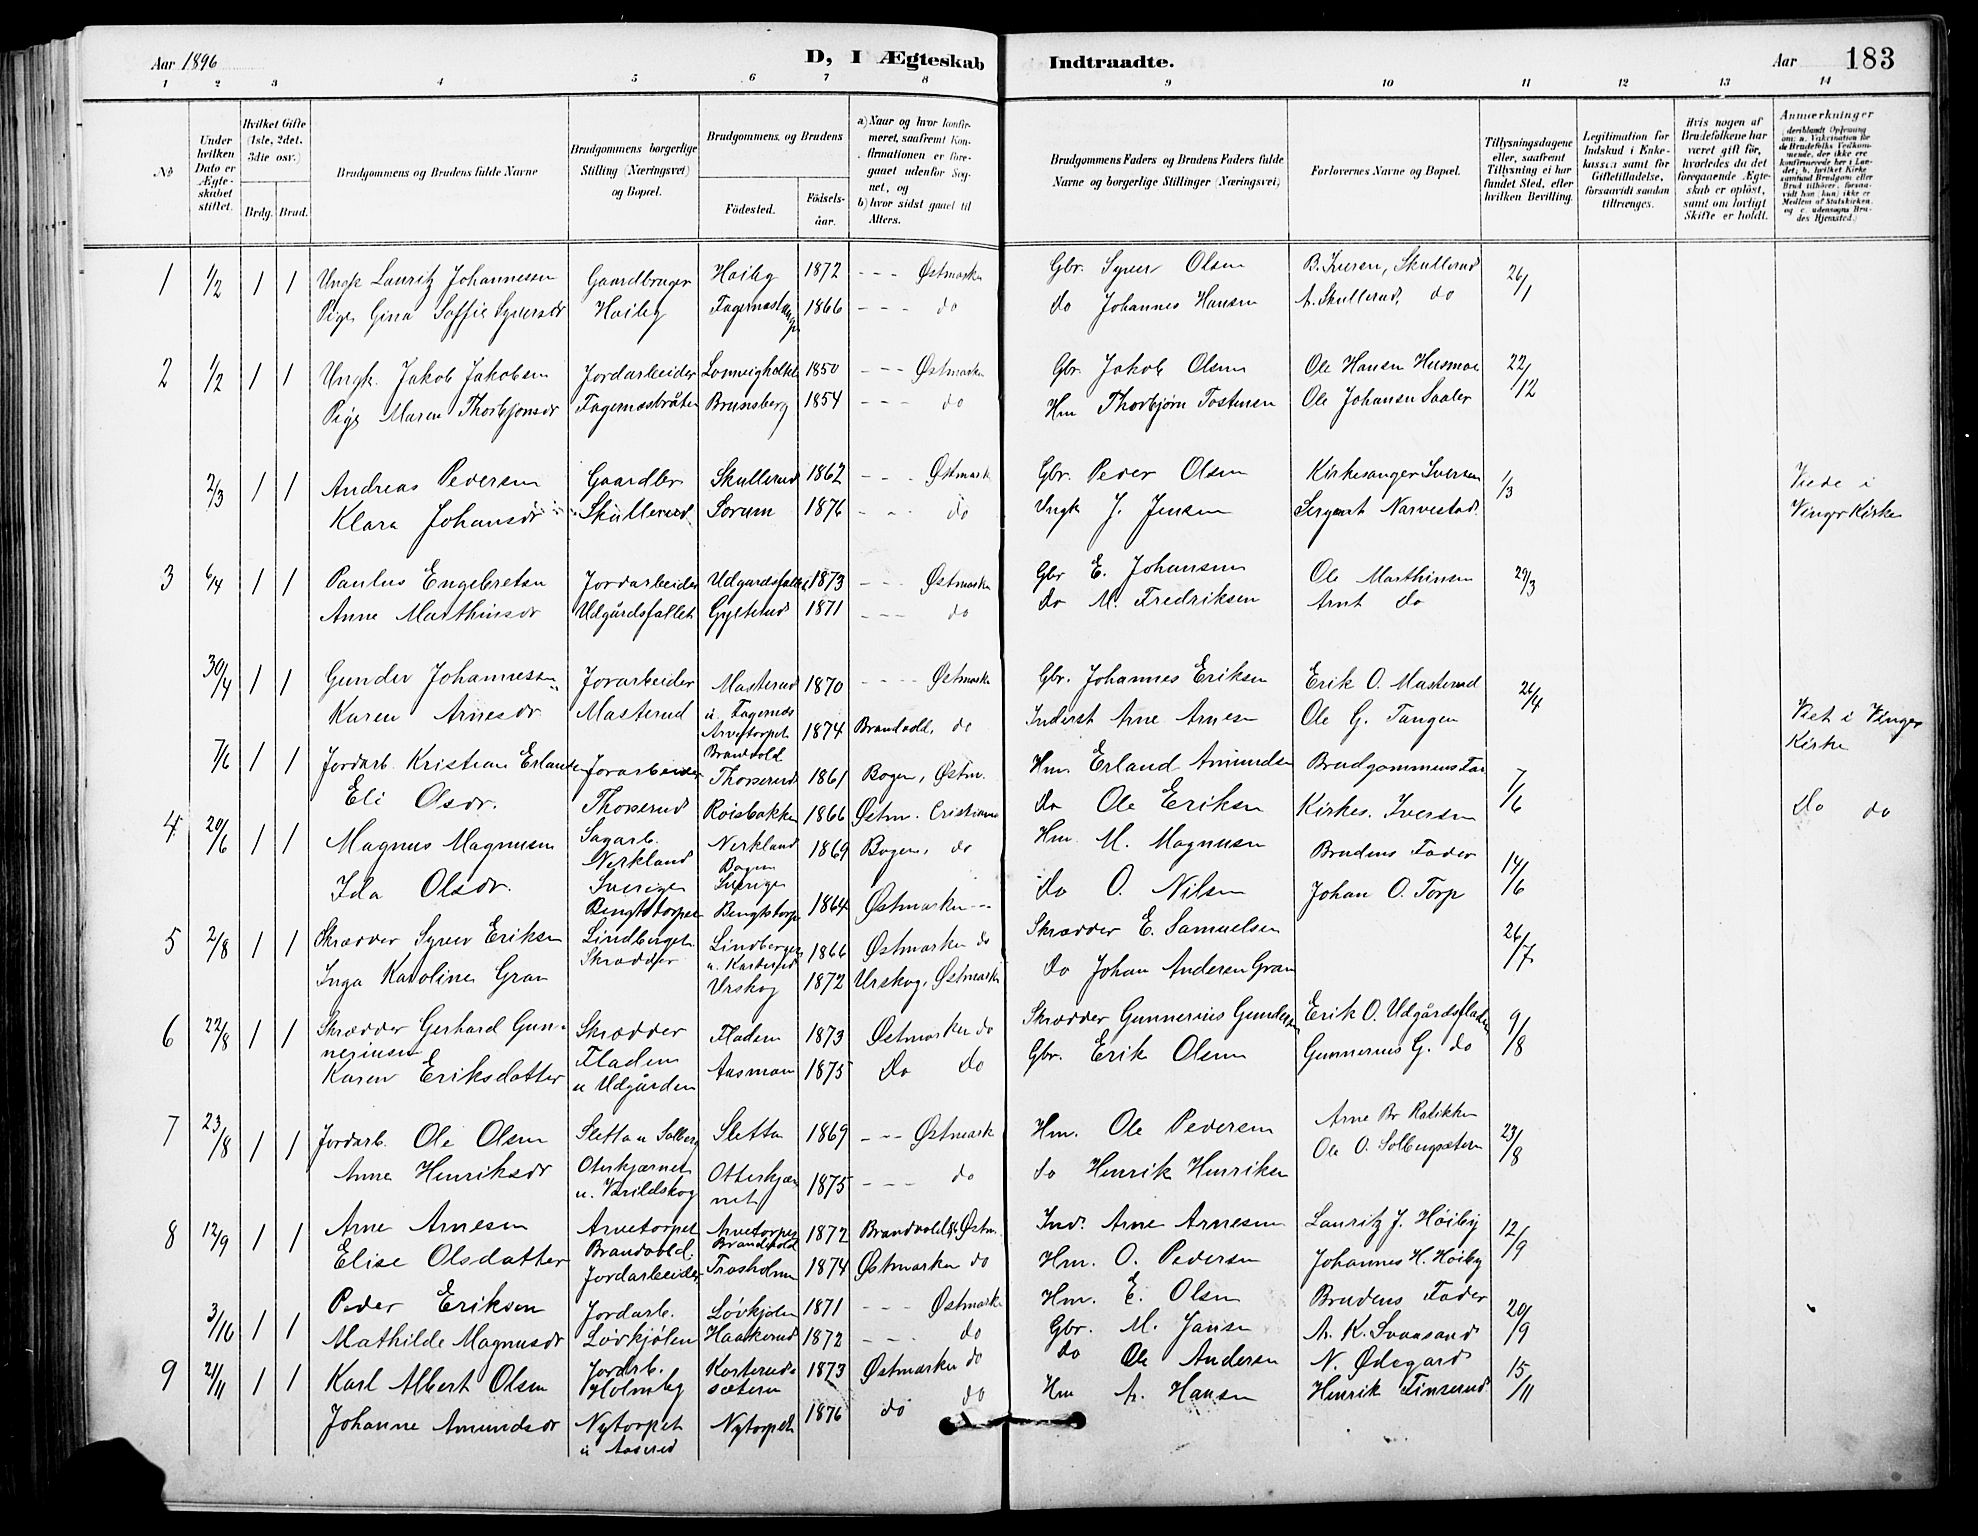 Aar 1896 D, I Ægteskab Indtraadte. Aar 183
1 2 3 4 5 6 7 8 9 10 11 12 13 14
No
Under hvilken Dato er Ægteskabet stiftet.
Hvilket Gifte (1ste, 2det, 3die osv.)
Brdg. Brud.
Brudgommens og Brudens fulde Navne
Brudgommens borgerlige Stilling (Næringsvei) og Bopæl.
Brudgommens og Brudens
Fødested.
Fødselsaar.
a) Naar og hvor konfirmeret, saafremt Konfirmationen er foregaaet udenfor Sognet, og
b) hvor sidst gaaet til Alters.
Brudgommens Faders og Brudens Faders fulde Navne og borgerlige Stillinger (Næringsvei)
Forlovernes Navne og Bopæl.
Tillysningsdagene eller, saafremt Tillysning ei har fundet Sted, efter hvilken Bevilling.
Legitimation for Indskud i Enkekassen samt for Giftetilladelse, forsaavidt saadan tiltrænges.
Hvis nogen af Brudefolkene har været gift før, hvorledes da det foregaaende Ægteskab er opløst, samt om lovligt Skifte er holdt.
Anmærkninger
1 1/2 1 1 Ungk Lauritz Johannessen Gaardbruger Høiby 1872 - - - Østmarken Gbr. Syver Olsen B. Iversen, Skullerud 26/1
Pige Gina Soffie Syversdr Høiby 1866 - - - do do Johannes Hansen A. Skullerud, do
2 1/2 1 1 Ungk. Jakob Jakobsen Jordarbeider 1850 - - - Østmarken Gbr. Jakob Olsen Ole Hansen Husmoe 22/12
Pige Maren Thorbjønsdr Fagernæsbråten Brunsberg 1854 - - - do Hm Thorbjørn Tostensen Ole Johansen Saaler
2/3 1 1 Andreas Pedersen Gaardbr Skullerud 1862 - - - Østmark Gbr. Peder Olsen Kirkesanger Iversen 1/3 Viede i
Klara Johansdr Skullerud Sorum 1876 - - - do Ungk J. Jensen Sergeant Narvestad. Vinger Kirke
3 6/4 1 1 Paulus Engebretsen Jordarbeider Udgardsfallet 1873 - - - Østmarken Gbr E. Johansen Ole Marthinsen 29/3
Anne Marthinsdr Udgårdsfallet Gylterud 1871 - - - do do M. Fredriksen Arnt do
30/4 1 1 Gunder Johannessen Jorarbeider Masterud 1870 - - - Østmarke Gbr. Johannes Eriksen Erik O. Masterud 26/4
Karen Arnesdr Masterud u. Fagernæs Arvetorpet Brandvold 1874 Brandvold, do Inderst Arne Arnesen Ole G. Tangen Viet i Vinger Kirke
7/6 1 1 Jordarb. Kristian Erlandsen Jorarbeider Thorserud 1861 Bogen, Østm. Hm. Erland Amundsen Brudgommens Far 7/6
Eli Olsdr. Thorserud Roisbakken 1866 Østm. Cristiania do Ole Eriksen Kirkes. Iversen do do
4 20/6 1 1 Magnus Magnusen Sagarb. Nerkland Sverige Nerkland Bogen Sverige 1869 Bogen, do Hm. M. Magnusen Brudens Fader 14/6
Ida Olsdr. Bengtstorpet Bengtstorp 1864 Østmarken - - do O. Nilsen Johan O. Torp
5 2/8 1 1 Skrædder Syver Eriksen Lindberget. Skrædder Lindberget 1866 Østmarken do Skrædder E. Samuelsen 26/7
Inga Karoline Gran Urskog 1872 Urskog, Østmarke do Johan Andersen Gran
6 22/8 1 1 Skrædder Gerhard Gunneriusen Skrædder Fladen 1873 Østmarken do Skrædder Gunnerius Gundersen Erik O. Udgårdsfladen 9/8
Karen Eriksdatter Fladen u Udgården Aasman 1875 Do Do Gbr. Erik Olsen Gunnerius G. do
7 23/8 1 1 Jordarb. Ole Olsen Sletta u Solberg Sletta 1869 - - - Østmark Hm. Ole Pedersen Arne Br Ratikken 23/8
Anne Henriksdr Oterkjærnet u. Varildskog Otterkjærnet 1875 - - - do do Henrik Henriksen Ole O. Solbergsætern
8 12/9 1 1 Arne Arnesen Arvetorpet Brandvold. Arvetorpet Brandvold 1872 Brandvold, Østm. Ind. Arne Arnesen Lauritz J. Høiby 12/9
Elise Olsdatter Jordarbeider Trosholmen 1874 Østmarken do Hm. O. Pedersen Johannes H. Høiby
3/10 1 1 Peder Eriksen Jordarb. Løvkjølen 1871 - - - Østmarke Hm. E. Olsen Brudens Fader 20/9
Mathilde Magnusdr Løvkjølen Haakerud 1872 - - - do Gbr. M. Jansen A. K. Svansand
9 21/11 1 1 Karl Albert Olsen Jordarb. Holmby Korterudsæteren 1873 Østmarken do do Ole Andersen N. Ødegard 15/11
Johanne Amundsdr Nytorpet u Aaserud Nytorpet 1876 do do Hm A. Hansen Henrik Finserud